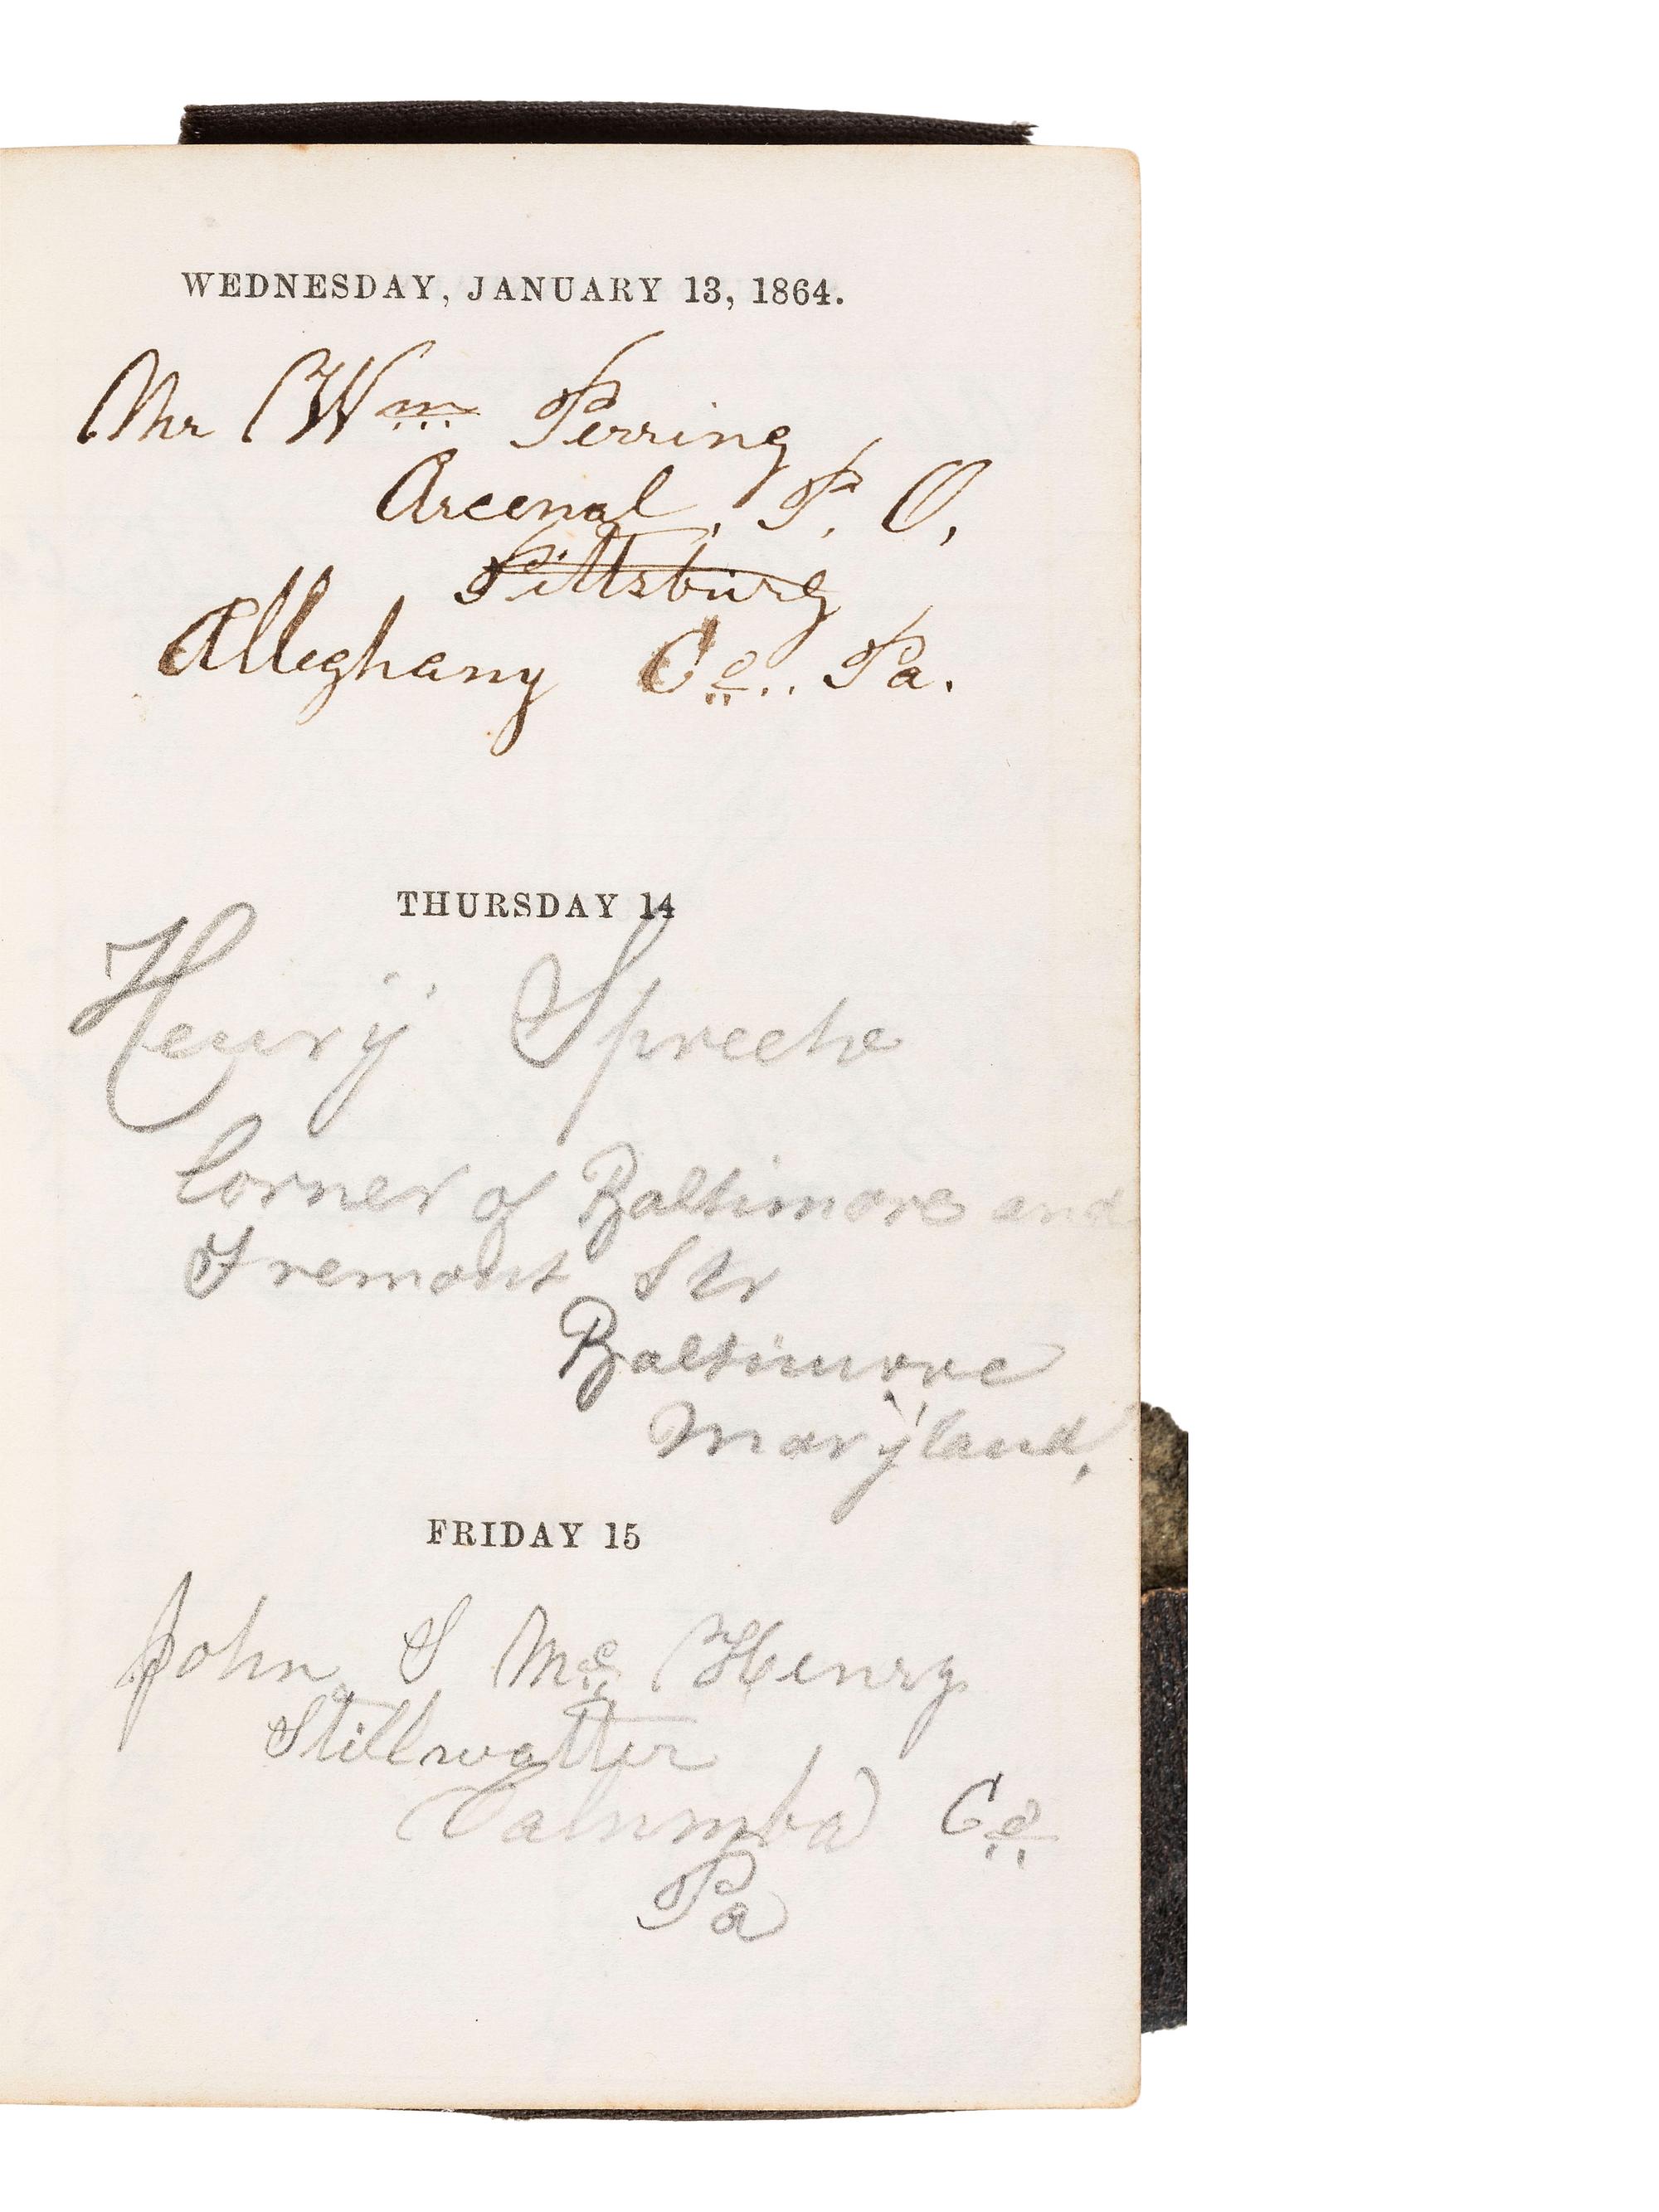 WEDNESDAY, JANUARY 13, 1864.
Mr Wm Perring
Arcenal, P. O,
Pittsburg
Alleghany Co.. Pa.
THURSDAY 14
Henry Spreche
Corner of Baltimore and
Fremont Str
Baltimore
Maryland,
FRIDAY 15
John S Mc Henry
Stillwatter
Calumba Co
Pa